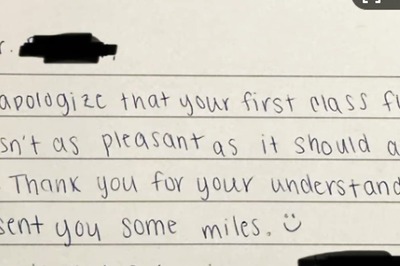 r.
apologize that your first class fl
sn't as pleasant as it should a
Thank you for your understand
sent you some miles. :)